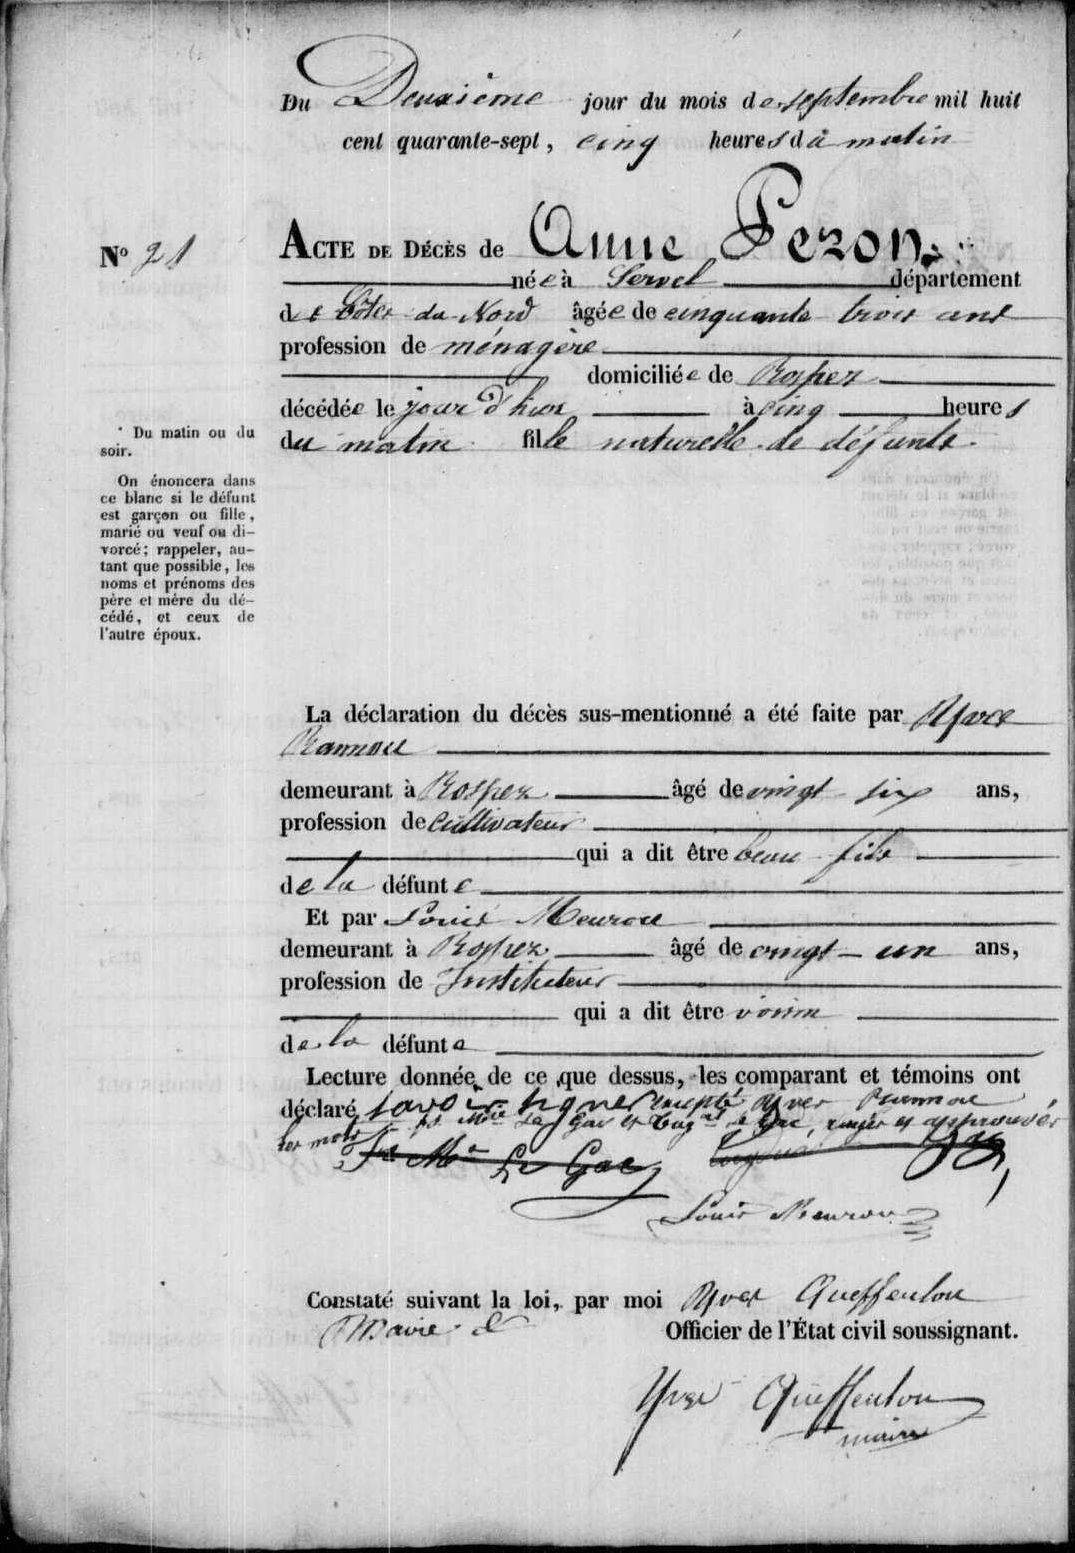 Du Deuxième jour du mois de septembre mil huit
cent quarante-sept, cinq heures du matin
N° 21
ACTE DE DÉCÈS de Anne Pezon
née à Servel département
des Côtes du Nord âgée de cinquante trois ans
profession de ménagère
domiciliée de Rospez
décédée le jour d'hier à cinq heures
du matin fille naturelle de défunte
* Du matin ou du
soir.
On énoncera dans
ce blanc si le défunt
est garçon ou fille,
marié ou veuf ou di-
vorcé; rappeler, au-
tant que possible, les
noms et prénoms des
père et mère du dé-
cédé, et ceux de
l'autre époux.
La déclaration du décès sus-mentionné a été faite par Yves
Rannou
demeurant à Rospez âgé de vingt six ans,
profession de cultivateur
qui a dit être beau fils
de la défunte
Et par Louis Meurou
demeurant à Rospez âgé de vingt un ans,
profession de Instituteur
qui a dit être voisin
de la défunte
Lecture donnée de ce que dessus, les comparant et témoins ont
déclaré savoir signer excepté Yves Rannou
les mots Le Gac et Le Gac, rayés et approuvés
Le Gac
Louis Meurou
Constaté suivant la loi, par moi Yves Queffeulou
Maire Officier de l'État civil soussignant.
Yves Queffeulou
maire